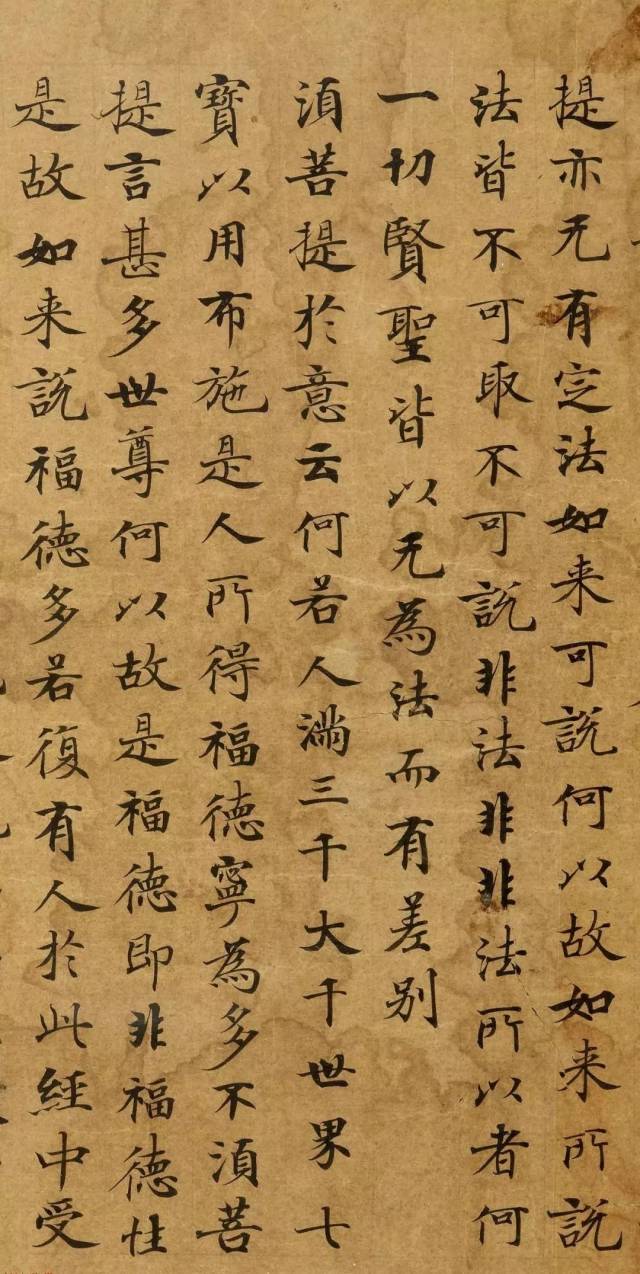 提亦无有定法如来可說何以故如来所說
法皆不可取不可說非法非非法所以者何
一切賢聖皆以无為法而有差别
須菩提於意云何若人滿三千大千世界七
寳以用布施是人所得福德寧為多不須菩
提言甚多世尊何以故是福德即非福德性
是故如来說福德多若復有人於此經中受